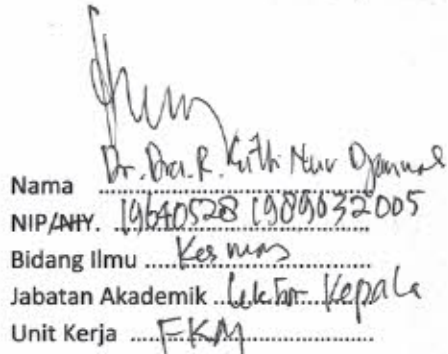 Nama Dr. Dra. R. Kuthi Nur Djannah
NIP/NIY. 19640528 198903 2005
Bidang Ilmu Kesmas
Jabatan Akademik Lektor Kepala
Unit Kerja FKM